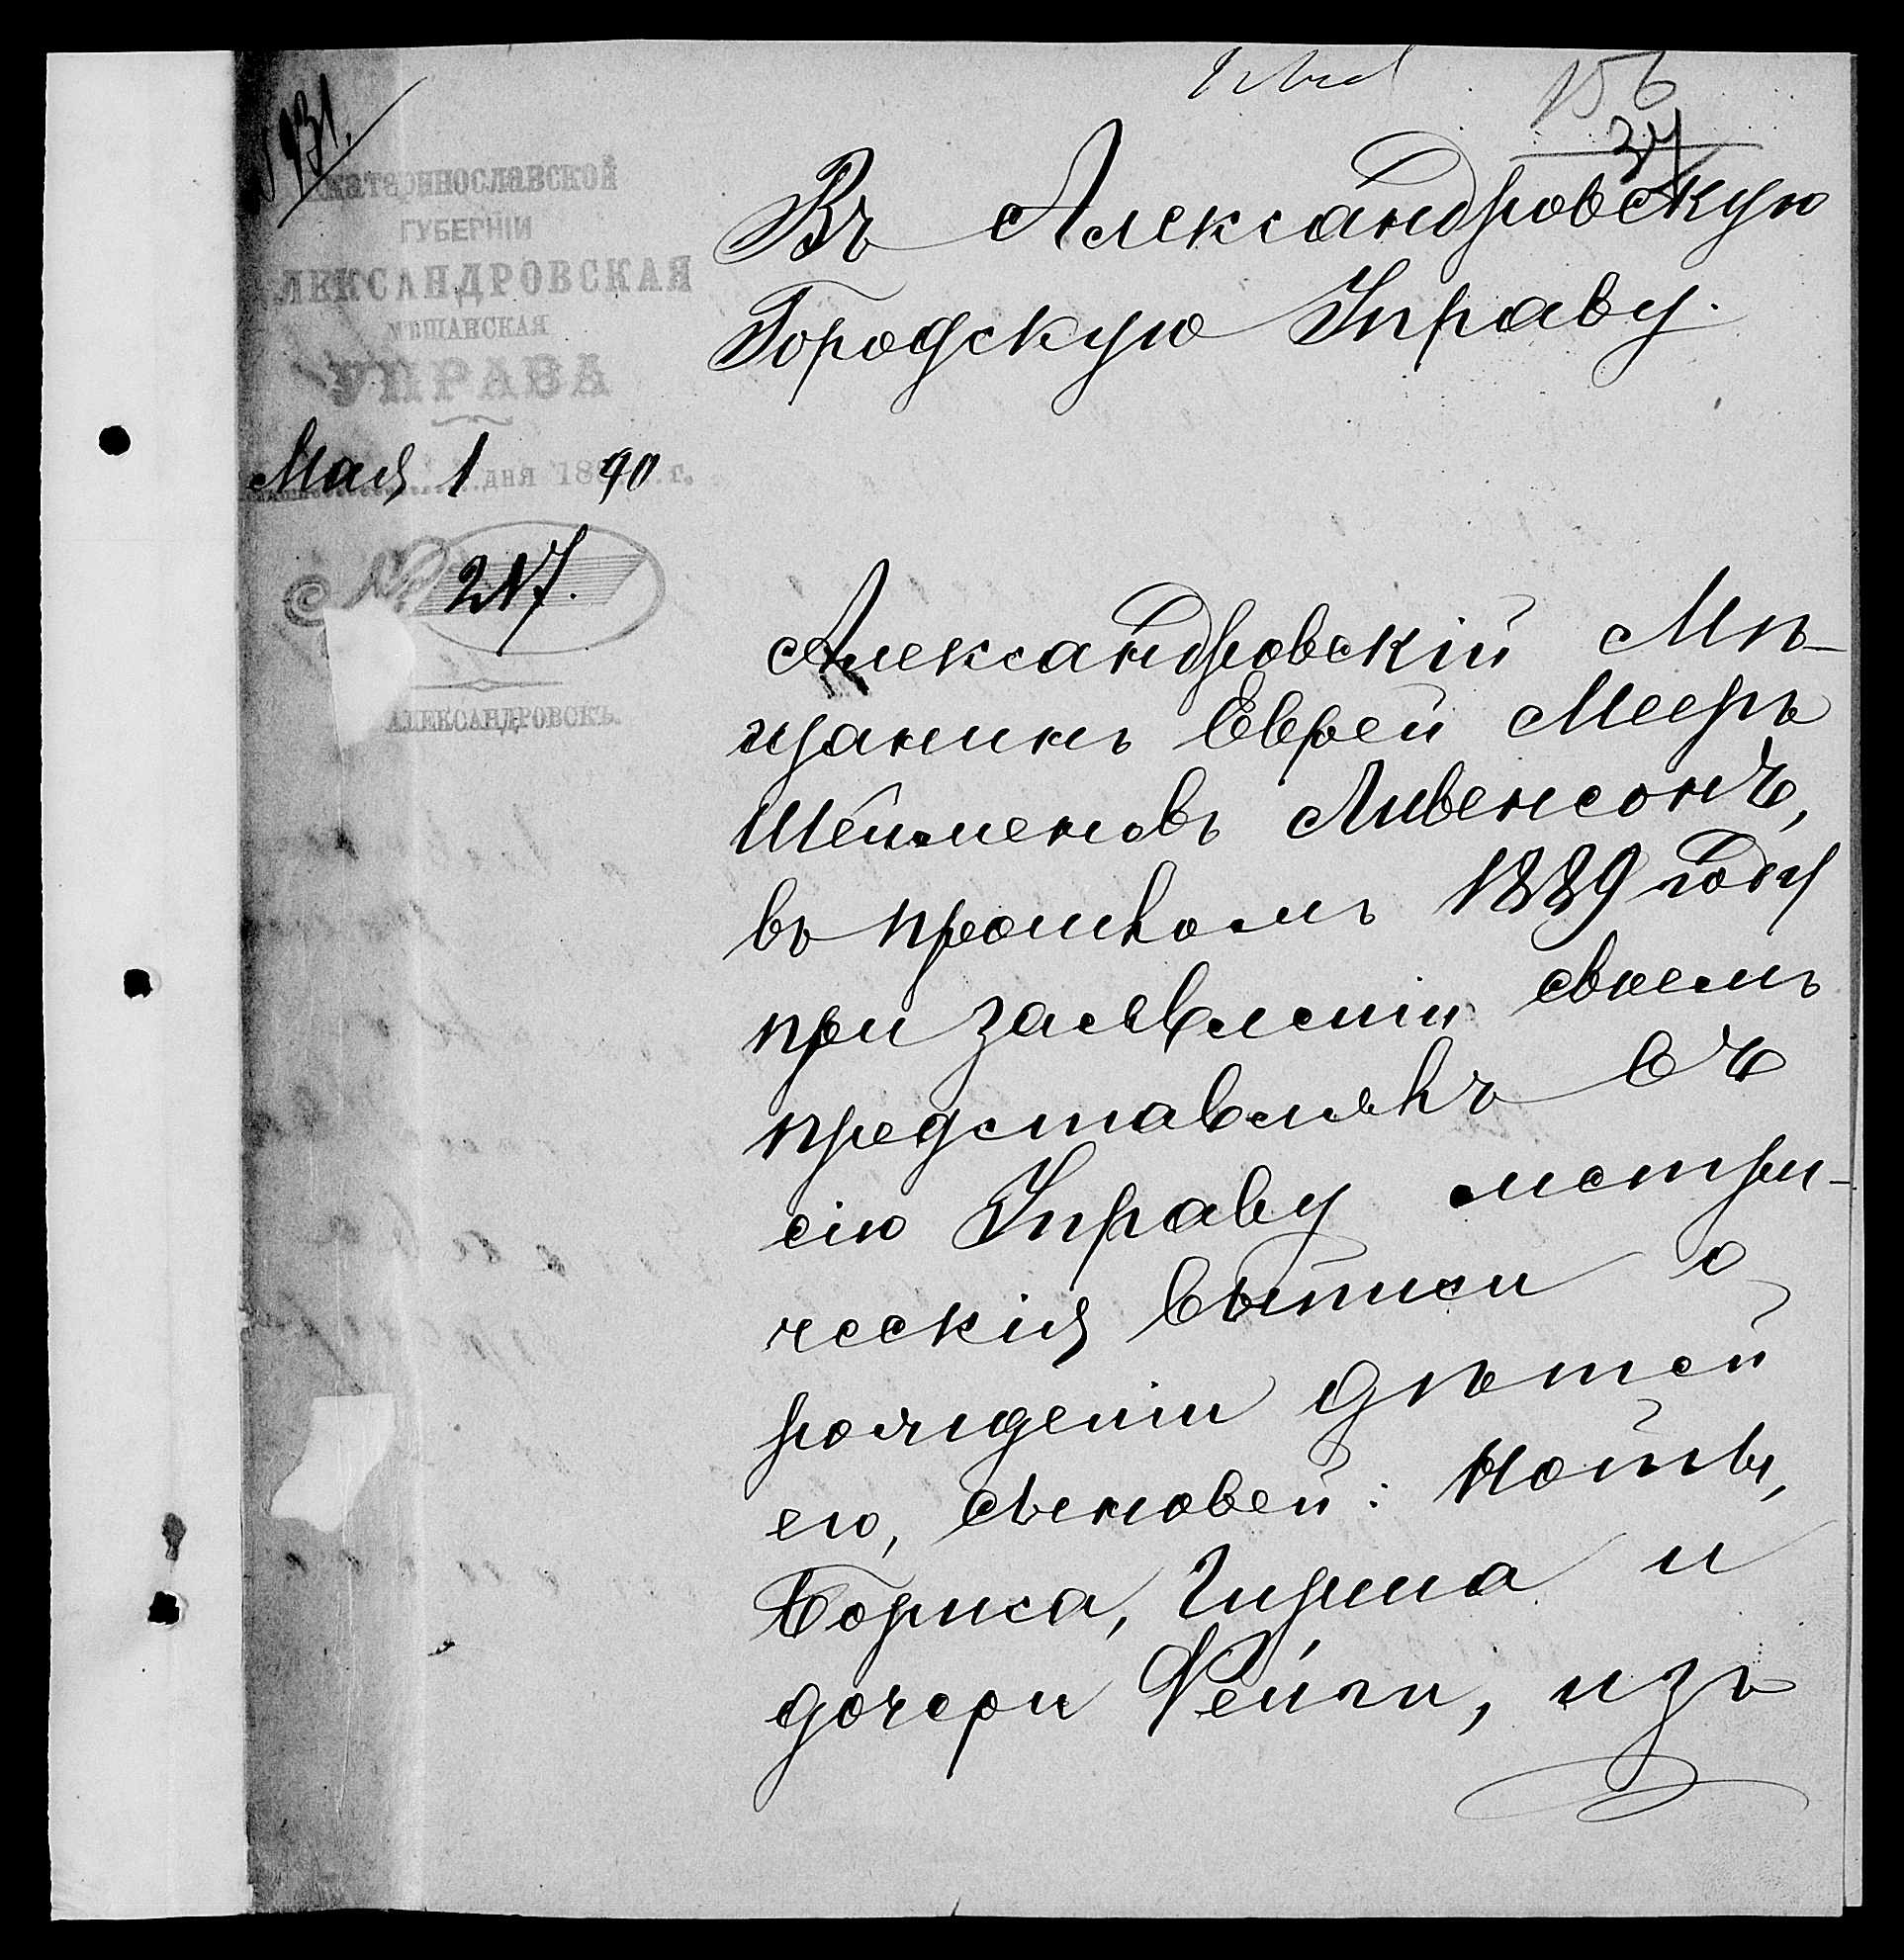 931.
156
34
Екатеринославской
ГУБЕРНІИ
АЛЕКСАНДРОВСКАЯ
МѢЩАНСКАЯ
УПРАВА
Мая 1 дня 1890 г.
№ 217.
АЛЕКСАНДРОВСКЪ.
Въ Александровскую
Городскую Управу.
Александровскій Мѣ-
щанинъ Еврей Мееръ
Шеймановъ Ливенсонъ,
въ прошломъ 1889 году
при заявленіи своемъ
представлялъ въ
сію Управу метри-
ческія выписи о
рожденіи дѣтей
его, сыновей: Ноты,
Бориса, Гирша и
дочери Фейги, изъ